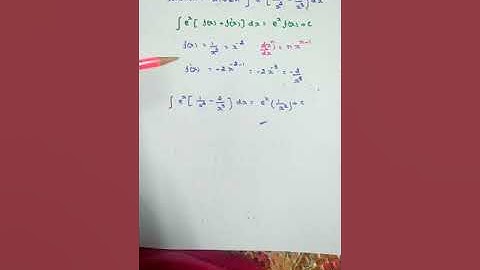 ∫ e^x [1/x² - 2/x³] dx
∫ e^x [ f(x) + f'(x) ] dx = e^x f(x) + c
f(x) = 1/x² = x^-2 dx^n/dx = n x^(n-1)
f'(x) = -2x^(-2-1) = -2x^-3 = -2/x³
∫ e^x [ 1/x² - 2/x³ ] dx = e^x (1/x²) + c